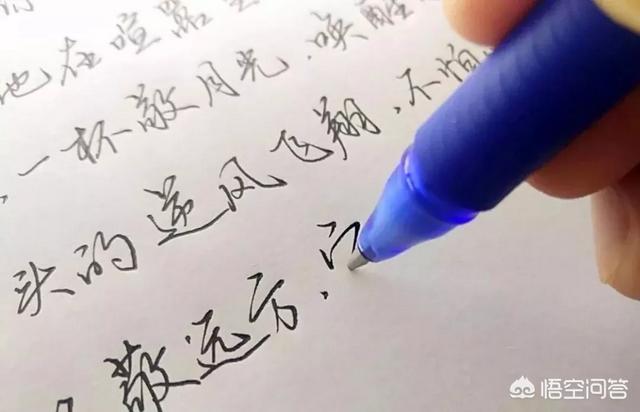 他在喧嚣
一杯敬月光,唤醒
头的逆风飞翔,不怕
敬远方,
悟空问答